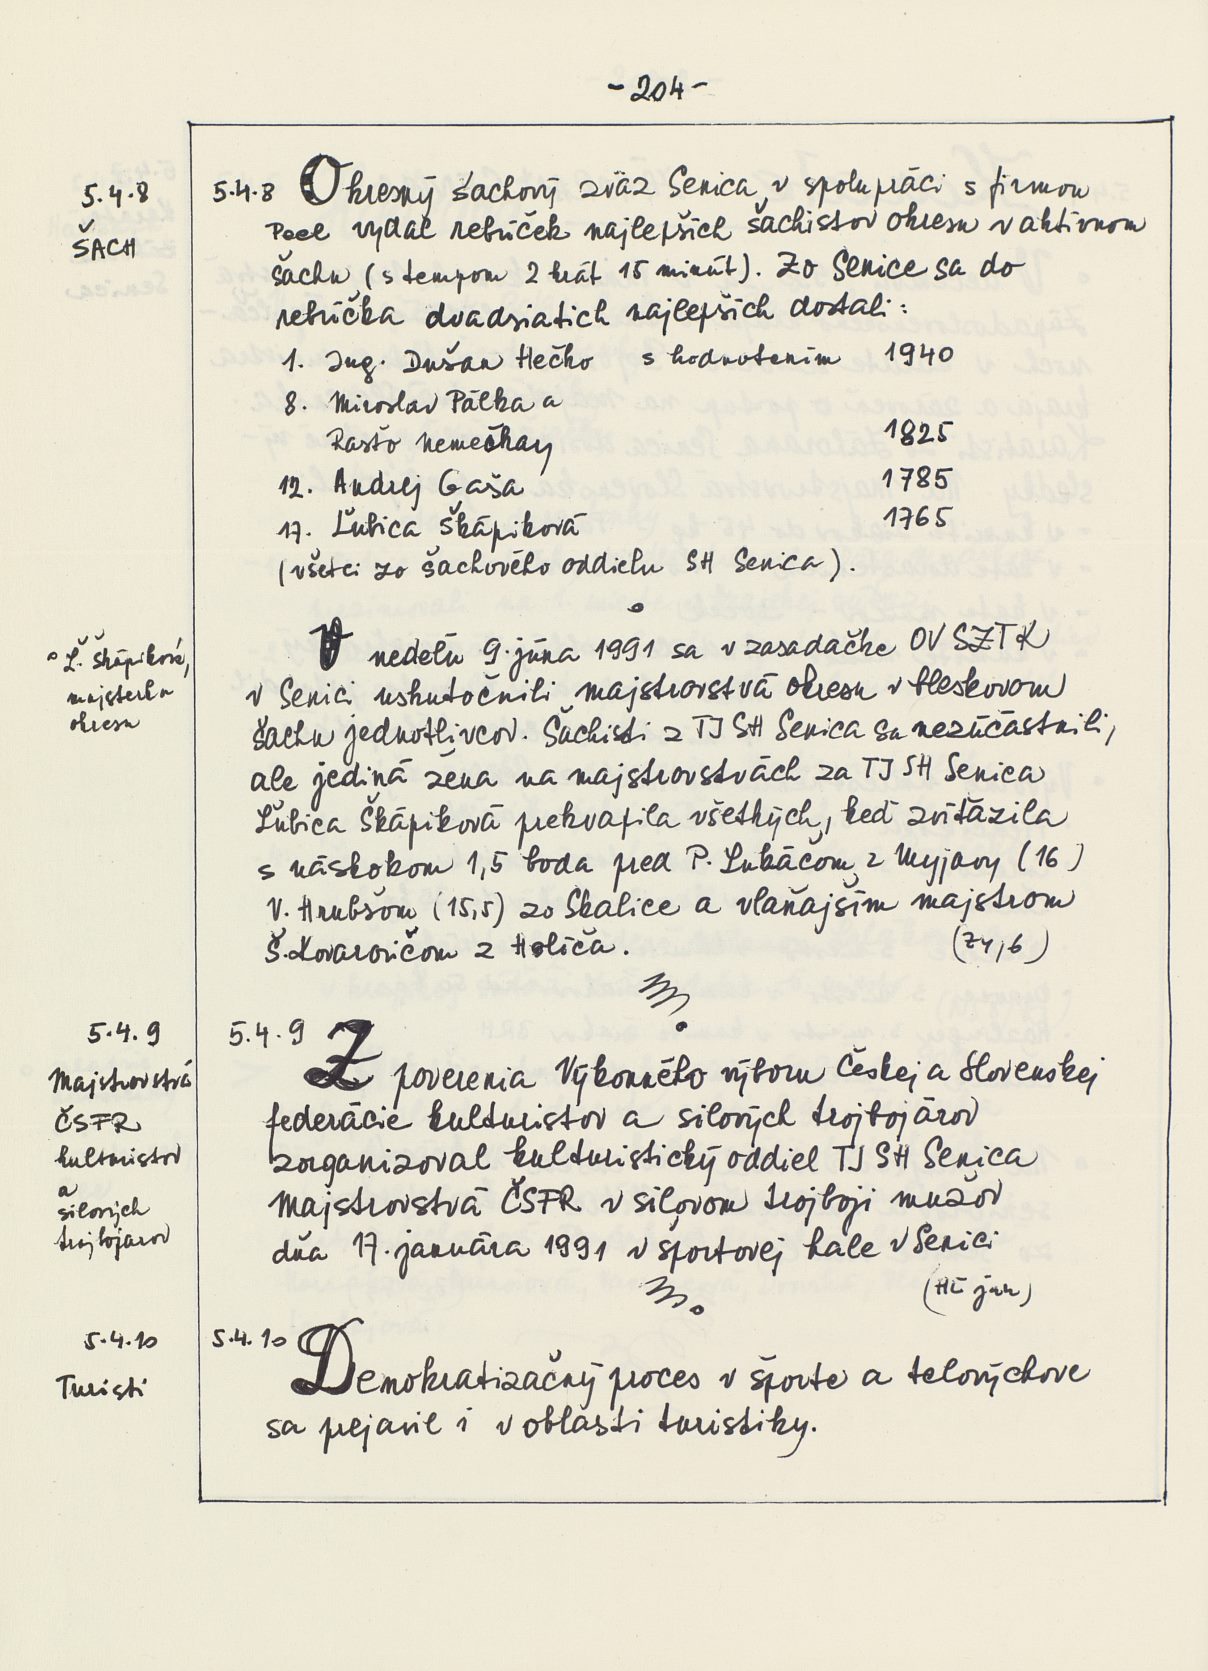 - 204 -
5.4.8
ŠACH
5.4.8 Okresný šachový zväz Senica v spolupráci s firmou
Pael vydal rebríček najlepších šachistov okresu v aktívnom
šachu (s tempom 2 krát 15 minút). Zo Senice sa do
rebríčka dvadsiatich najlepších dostali:
1. Ing. Dušan Hečko s hodnotením 1940
8. Miroslav Pálka a
Rasťo Nemečkay 1825
12. Andrej Gaša 1785
17. Ľubica Škápiková 1765
(všetci zo šachového oddielu SH Senica).
° Ľ. Škápiková,
majsterka
okresu
V nedeľu 9. júna 1991 sa v zasadačke OV SZTK
v Senici uskutočnili majstrovstvá okresu v bleskovom
šachu jednotlivcov. Šachisti z TJ SH Senica sa nezúčastnili,
ale jediná žena na majstrovstvách za TJ SH Senica
Ľubica Škápiková prekvapila všetkých, keď zvíťazila
s náskokom 1,5 boda pred P. Lukáčom z Myjavy (16)
V. Hrubšom (15,5) zo Skalice a vlaňajším majstrom
Š. Kovarovičom z Holíča. (Zy,6)
5.4.9
Majstrovstvá
ČSFR
kulturistov
a
silových
trojbojarov
5.4.9 Z poverenia Výkonného výboru Českej a Slovenskej
federácie kulturistov a silových trojbojárov
zorganizoval kulturistický oddiel TJ SH Senica
Majstrovstvá ČSFR v silovom trojboji mužov
dňa 17. januára 1991 v športovej hale v Senici
(HL jan)
5.4.10
Turisti
5.4.10 Demokratizačný proces v športe a telovýchove
sa prejavil i v oblasti turistiky.